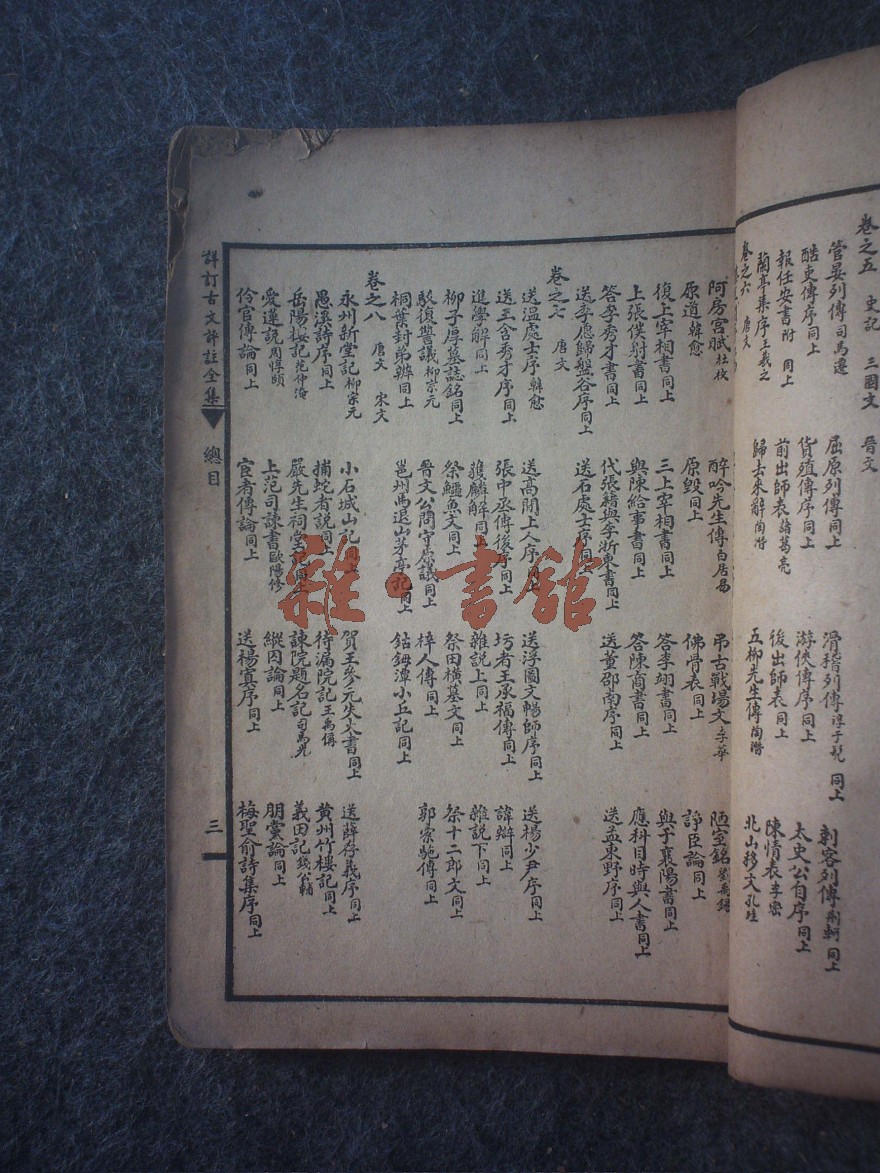 卷之五 史記 三國文 晉文
管晏列傳司馬遷 屈原列傳同上 滑稽列傳淳于髡 同上 刺客列傳荆軻 同上
酷吏傳序同上 貨殖傳序同上 游俠傳序同上 太史公自序同上
報任安書附 同上 前出師表諸葛亮 後出師表同上 陳情表李密
蘭亭集序王羲之 歸去來辭陶潛 五柳先生傳陶潛 北山移文孔珪
卷之六 唐文
阿房宮賦杜牧 醉吟先生傳白居易 弔古戰場文李華 陋室銘劉禹錫
原道韓愈 原毀同上 佛骨表同上 諍臣論同上
復上宰相書同上 三上宰相書同上 答李翊書同上 與于襄陽書同上
上張僕射書同上 與陳給事書同上 答陳商書同上 應科目時與人書同上
答李秀才書同上 代張籍與李浙東書同上 送董邵南序同上 送孟東野序同上
送李愿歸盤谷序同上 送石處士序同上
卷之七 唐文
送溫處士序韓愈 送高閒上人序同上 送浮圖文暢師序同上 送楊少尹序同上
送王含秀才序同上 張中丞傳後序同上 圬者王承福傳同上 諱辯同上
進學解同上 獲麟解同上 雜說上同上 雜說下同上
柳子厚墓誌銘同上 祭鱷魚文同上 祭田橫墓文同上 祭十二郎文同上
駁復讐議柳宗元 晉文公問守原議同上 梓人傳同上 郭橐駝傳同上
桐葉封弟辨同上 邕州馬退山茅亭記同上 鈷鉧潭小丘記同上
卷之八 唐文 宋文
永州新堂記柳宗元 小石城山記同上 賀王參元失火書同上 送薛存義序同上
愚溪詩序同上 捕蛇者說同上 待漏院記王禹偁 黃州竹樓記同上
岳陽樓記范仲淹 嚴先生祠堂記同上 諫院題名記司馬光 義田記錢公輔
愛蓮說周惇頤 上范司諫書歐陽修 縱囚論同上 朋黨論同上
伶官傳論同上 宦者傳論同上 送楊寘序同上 梅聖俞詩集序同上
詳訂古文評註全集 總目 三
雜·書館